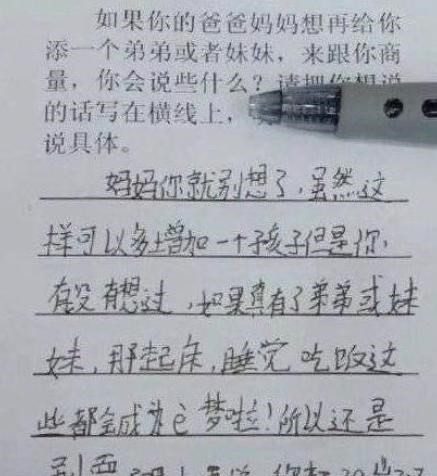 如果你的爸爸妈妈想再给你
添一个弟弟或者妹妹，来跟你商
量，你会说些什么？请把你想说
的话写在横线上，
说具体。
妈妈你就别想了，虽然这
样可以多增加一个孩子但是你，
有没有想过，如果真有了弟弟或妹
妹，那起床，睡觉吃饭这
些都会成为它梦啦！所以还是
别要